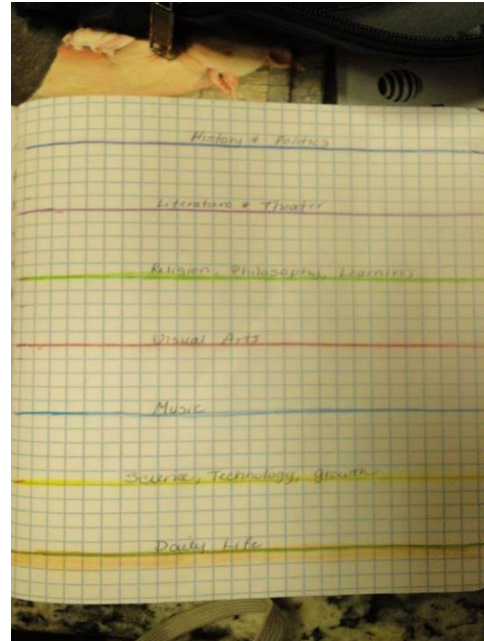 History & Politics
Literature & Theater
Religion, Philosophy, Learning
Visual Arts
Music
Science, Technology, Growth
Daily Life